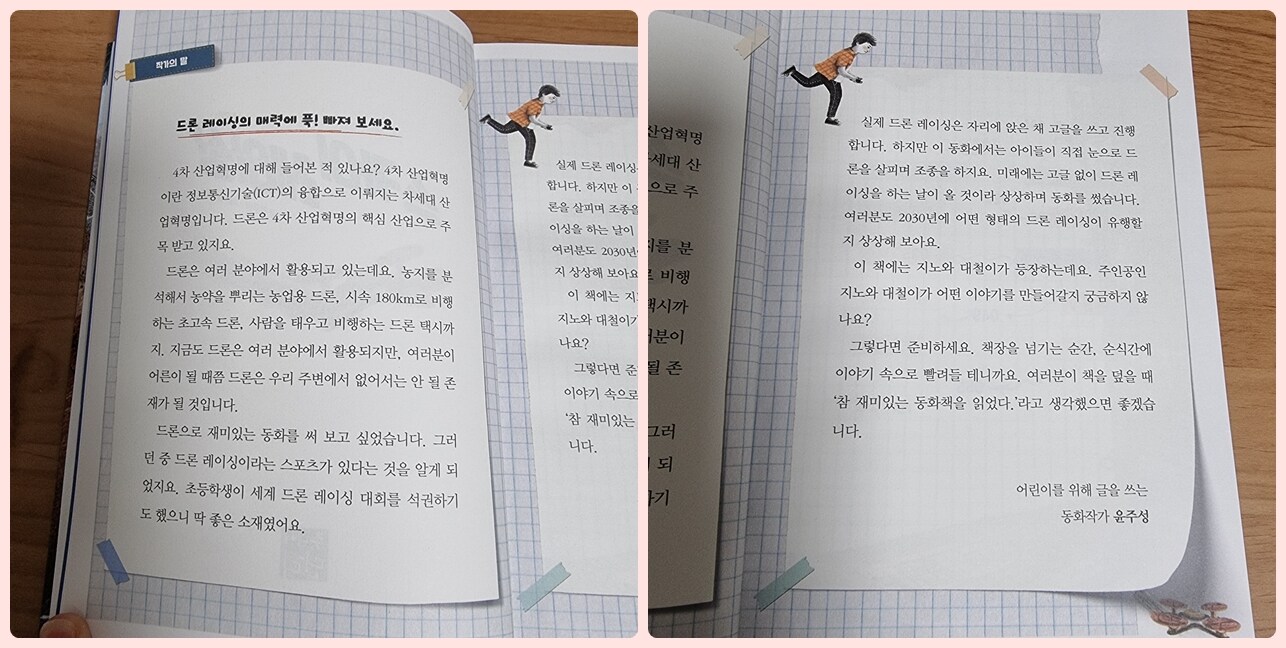 작가의 말
드론 레이싱의 매력에 푹! 빠져 보세요.
4차 산업혁명에 대해 들어본 적 있나요? 4차 산업혁명
이란 정보통신기술(ICT)의 융합으로 이뤄지는 차세대 산
업혁명입니다. 드론은 4차 산업혁명의 핵심 산업으로 주
목 받고 있지요.
드론은 여러 분야에서 활용되고 있는데요. 농지를 분
석해서 농약을 뿌리는 농업용 드론, 시속 180km로 비행
하는 초고속 드론, 사람을 태우고 비행하는 드론 택시까
지. 지금도 드론은 여러 분야에서 활용되지만, 여러분이
어른이 될 때쯤 드론은 우리 주변에서 없어서는 안 될 존
재가 될 것입니다.
드론으로 재미있는 동화를 써 보고 싶었습니다. 그러
던 중 드론 레이싱이라는 스포츠가 있다는 것을 알게 되
었지요. 초등학생이 세계 드론 레이싱 대회를 석권하기
도 했으니 딱 좋은 소재였어요.
실제 드론 레이싱
합니다. 하지만 이
론을 살피며 조종을
이싱을 하는 날이
여러분도 2030년
지 상상해 보아요
이 책에는 지
지노와 대철이가
나요?
그렇다면 준
이야기 속으로
‘참 재미있는
니다.
산업혁명
세대 산
으로 주
지를 분
로 비행
택시까
러분이
될 존
그러
되
하기
실제 드론 레이싱은 자리에 앉은 채 고글을 쓰고 진행
합니다. 하지만 이 동화에서는 아이들이 직접 눈으로 드
론을 살피며 조종을 하지요. 미래에는 고글 없이 드론 레
이싱을 하는 날이 올 것이라 상상하며 동화를 썼습니다.
여러분도 2030년에 어떤 형태의 드론 레이싱이 유행할
지 상상해 보아요.
이 책에는 지노와 대철이가 등장하는데요. 주인공인
지노와 대철이가 어떤 이야기를 만들어갈지 궁금하지 않
나요?
그렇다면 준비하세요. 책장을 넘기는 순간, 순식간에
이야기 속으로 빨려들 테니까요. 여러분이 책을 덮을 때
‘참 재미있는 동화책을 읽었다.’라고 생각했으면 좋겠습
니다.
어린이를 위해 글을 쓰는
동화작가 윤주성